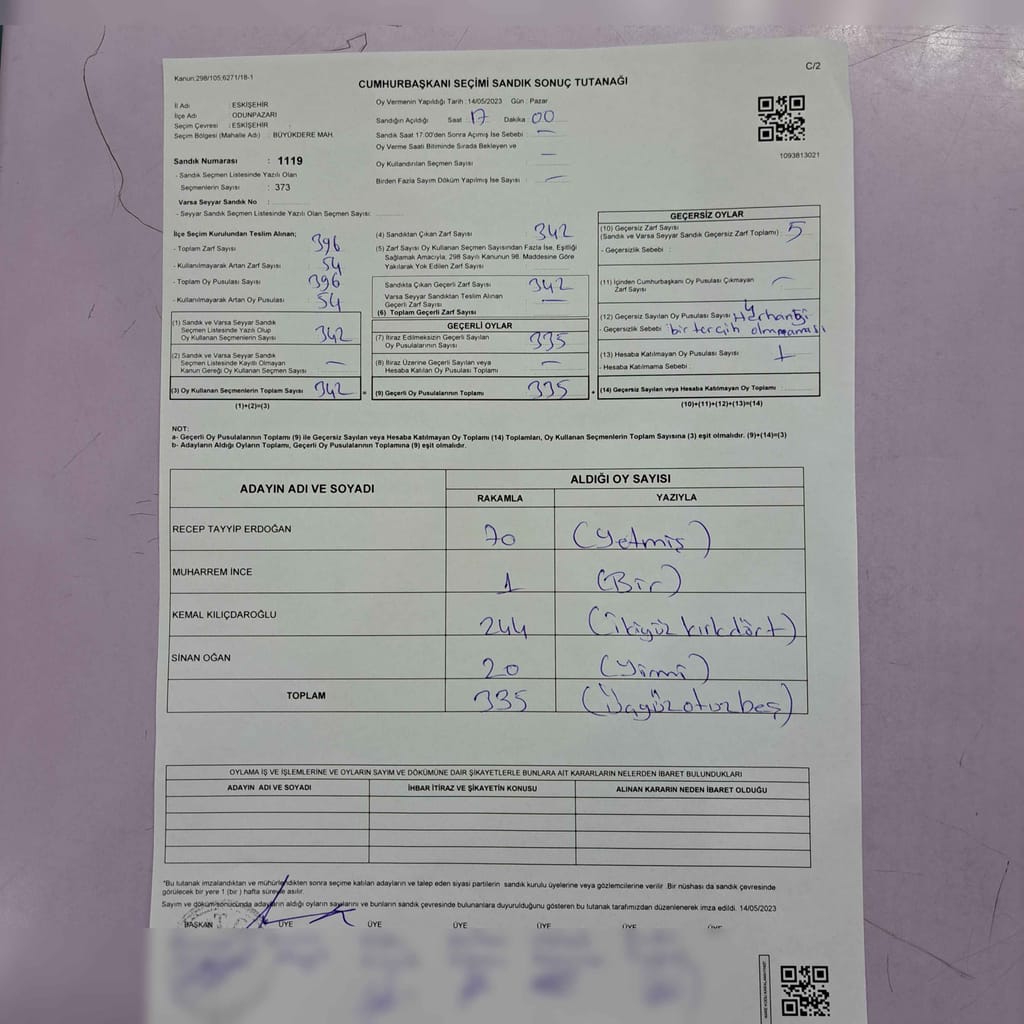 Kanun:298/105;6271/18-1
C/2
CUMHURBAŞKANI SEÇİMİ SANDIK SONUÇ TUTANAĞI
İl Adı : ESKİŞEHİR
İlçe Adı : ODUNPAZARI
Seçim Çevresi : ESKİŞEHİR
Seçim Bölgesi (Mahalle Adı) : BÜYÜKDERE MAH.
Sandık Numarası : 1119
- Sandık Seçmen Listesinde Yazılı Olan
Seçmenlerin Sayısı : 373
Varsa Seyyar Sandık No :
- Seyyar Sandık Seçmen Listesinde Yazılı Olan Seçmen Sayısı:
Oy Vermenin Yapıldığı Tarih :14/05/2023 Gün : Pazar
Sandığın Açıldığı Saat : 17 Dakika : 00
Sandık Saat 17:00'den Sonra Açımış İse Sebebi : —
Oy Verme Saati Bitiminde Sırada Bekleyen ve
Oy Kullandırılan Seçmen Sayısı —
Birden Fazla Sayım Döküm Yapılmış İse Sayısı : —
1093813021
İlçe Seçim Kurulundan Teslim Alınan;
- Toplam Zarf Sayısı 396
- Kullanılmayarak Artan Zarf Sayısı 54
- Toplam Oy Pusulası Sayısı 396
- Kullanılmayarak Artan Oy Pusulası 54
(1) Sandık ve Varsa Seyyar Sandık
Seçmen Listesinde Yazılı Olup
Oy Kullanan Seçmenlerin Sayısı 342
(2) Sandık ve Varsa Seyyar Sandık
Seçmen Listesinde Kayıtlı Olmayan
Kanun Gereği Oy Kullanan Seçmen Sayısı —
(3) Oy Kullanan Seçmenlerin Toplam Sayısı 342 =
(1)+(2)=(3)
(4) Sandıktan Çıkan Zarf Sayısı 342
(5) Zarf Sayısı Oy Kullanan Seçmen Sayısından Fazla İse, Eşitliği
Sağlamak Amacıyla; 298 Sayılı Kanunun 98. Maddesine Göre
Yakılarak Yok Edilen Zarf Sayısı
Sandıkta Çıkan Geçerli Zarf Sayısı 342
Varsa Seyyar Sandıktan Teslim Alınan
Geçerli Zarf Sayısı —
(6) Toplam Geçerli Zarf Sayısı
GEÇERLİ OYLAR
(7) İtiraz Edilmeksizin Geçerli Sayılan
Oy Pusulalarının Sayısı 335
(8) İtiraz Üzerine Geçerli Sayılan veya
Hesaba Katılan Oy Pusulası Toplamı —
(9) Geçerli Oy Pusulalarının Toplamı 335 +
GEÇERSİZ OYLAR
(10) Geçersiz Zarf Sayısı
(Sandık ve Varsa Seyyar Sandık Geçersiz Zarf Toplamı) 5
- Geçersizlik Sebebi :
(11) İçinden Cumhurbaşkanı Oy Pusulası Çıkmayan
Zarf Sayısı —
(12) Geçersiz Sayılan Oy Pusulası Sayısı 4 Herhangi
- Geçersizlik Sebebi bir tercih olmaması
(13) Hesaba Katılmayan Oy Pusulası Sayısı 1
- Hesaba Katılmama Sebebi :
(14) Geçersiz Sayılan veya Hesaba Katılmayan Oy Toplamı
(10)+(11)+(12)+(13)=(14)
NOT:
a- Geçerli Oy Pusulalarının Toplamı (9) ile Geçersiz Sayılan veya Hesaba Katılmayan Oy Toplamı (14) Toplamları, Oy Kullanan Seçmenlerin Toplam Sayısına (3) eşit olmalıdır. (9)+(14)=(3)
b- Adayların Aldığı Oyların Toplamı, Geçerli Oy Pusulalarının Toplamına (9) eşit olmalıdır.
ADAYIN ADI VE SOYADI
ALDIĞI OY SAYISI
RAKAMLA YAZIYLA
RECEP TAYYİP ERDOĞAN 70 (Yetmiş)
MUHARREM İNCE 1 (Bir)
KEMAL KILIÇDAROĞLU 244 (İkiyüz kırkdört)
SİNAN OĞAN 20 (Yirmi)
TOPLAM 335 (Üçyüzotuzbeş)
OYLAMA İŞ VE İŞLEMLERİNE VE OYLARIN SAYIM VE DÖKÜMÜNE DAİR ŞİKAYETLERLE BUNLARA AİT KARARLARIN NELERDEN İBARET BULUNDUKLARI
ADAYIN ADI VE SOYADI İHBAR İTİRAZ VE ŞİKAYETİN KONUSU ALINAN KARARIN NEDEN İBARET OLDUĞU
*Bu tutanak imzalandıktan ve mühürlendikten sonra seçime katılan adayların ve talep eden siyasi partilerin sandık kurulu üyelerine veya gözlemcilerine verilir. Bir nüshası da sandık çevresinde
görülecek bir yere 1 (bir ) hafta süreyle asılır.
Sayım ve döküm sonucunda adayların aldığı oyların sayılarını ve bunların sandık çevresinde bulunanlara duyurulduğunu gösteren bu tutanak tarafımızdan düzenlenerek imza edildi. 14/05/2023
BAŞKAN ÜYE ÜYE ÜYE ÜYE ÜYE ÜYE